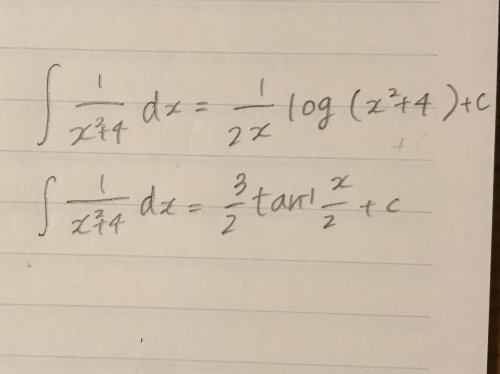 ∫ 1/(x²+4) dx = 1/(2x) log (x²+4) + c
∫ 1/(x²+4) dx = 3/2 tan⁻¹ x/2 + c